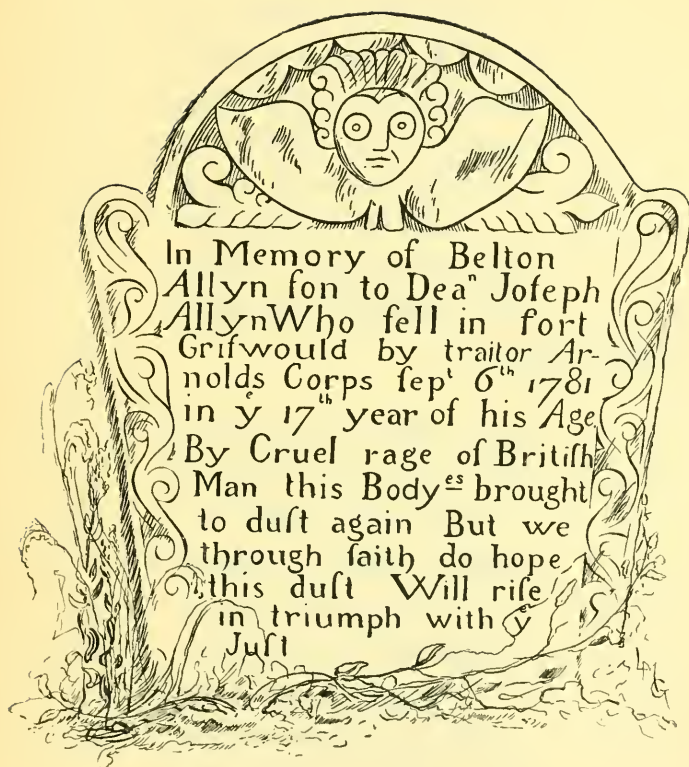 In Memory of Belton
Allyn ſon to Deaⁿ Joſeph
Allyn Who fell in fort
Griſwould by traitor Ar-
nolds Corps ſepᵗ 6ᵗʰ 1781
in yᵉ 17ᵗʰ year of his Age
By Cruel rage of Britiſh
Man this Bodyᵉˢ brought
to duſt again But we
through faith do hope
this duſt Will riſe
in triumph with yᵉ
Juſt
LAG